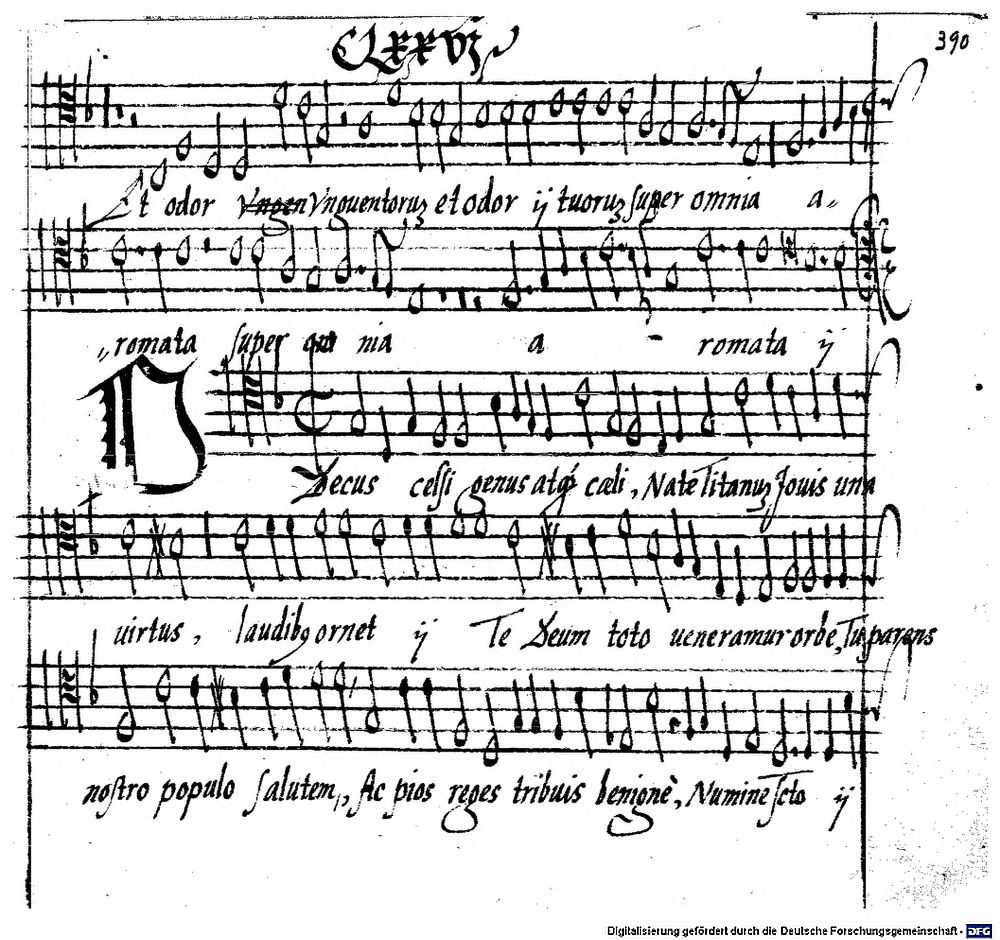 CLxxvij
390
Et odor Vnguentoruz et odor ij tuoruz super omnia a„
„romata super nia a - romata ij
Decus celsi genus atq́ cæli, Nate Titanuz Jouis una
uirtus, laudibꝫ ornet ij Te Deum toto ueneramur orbe, Tu parens
nostro populo salutem, Ac pios reges tribuis benignè, Numine scto ij
Digitalisierung gefördert durch die Deutsche Forschungsgemeinschaft - DFG